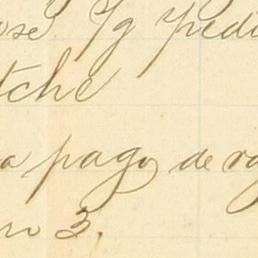 ose I/g pedi
tche
a pago de ra
n 3.